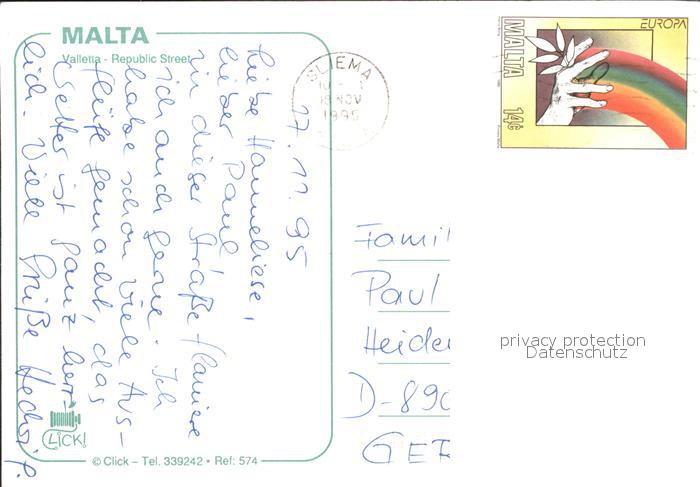 MALTA
Valletta - Republic Street
17.11.95
Liebe Hanneliese,
lieber Paul
in dieser Straße flaniere
ich auch gerne. Ich
habe schon viele Aus-
flüge gemacht, das
Wetter ist ganz herr-
lich. Viele Grüße
CLICK!
© Click – Tel. 339242 • Ref: 574
SLIEMA
18 NOV
1995
EUROPA
MALTA
14c
Famil
Paul
Heide
D-890
GER
privacy protection
Datenschutz